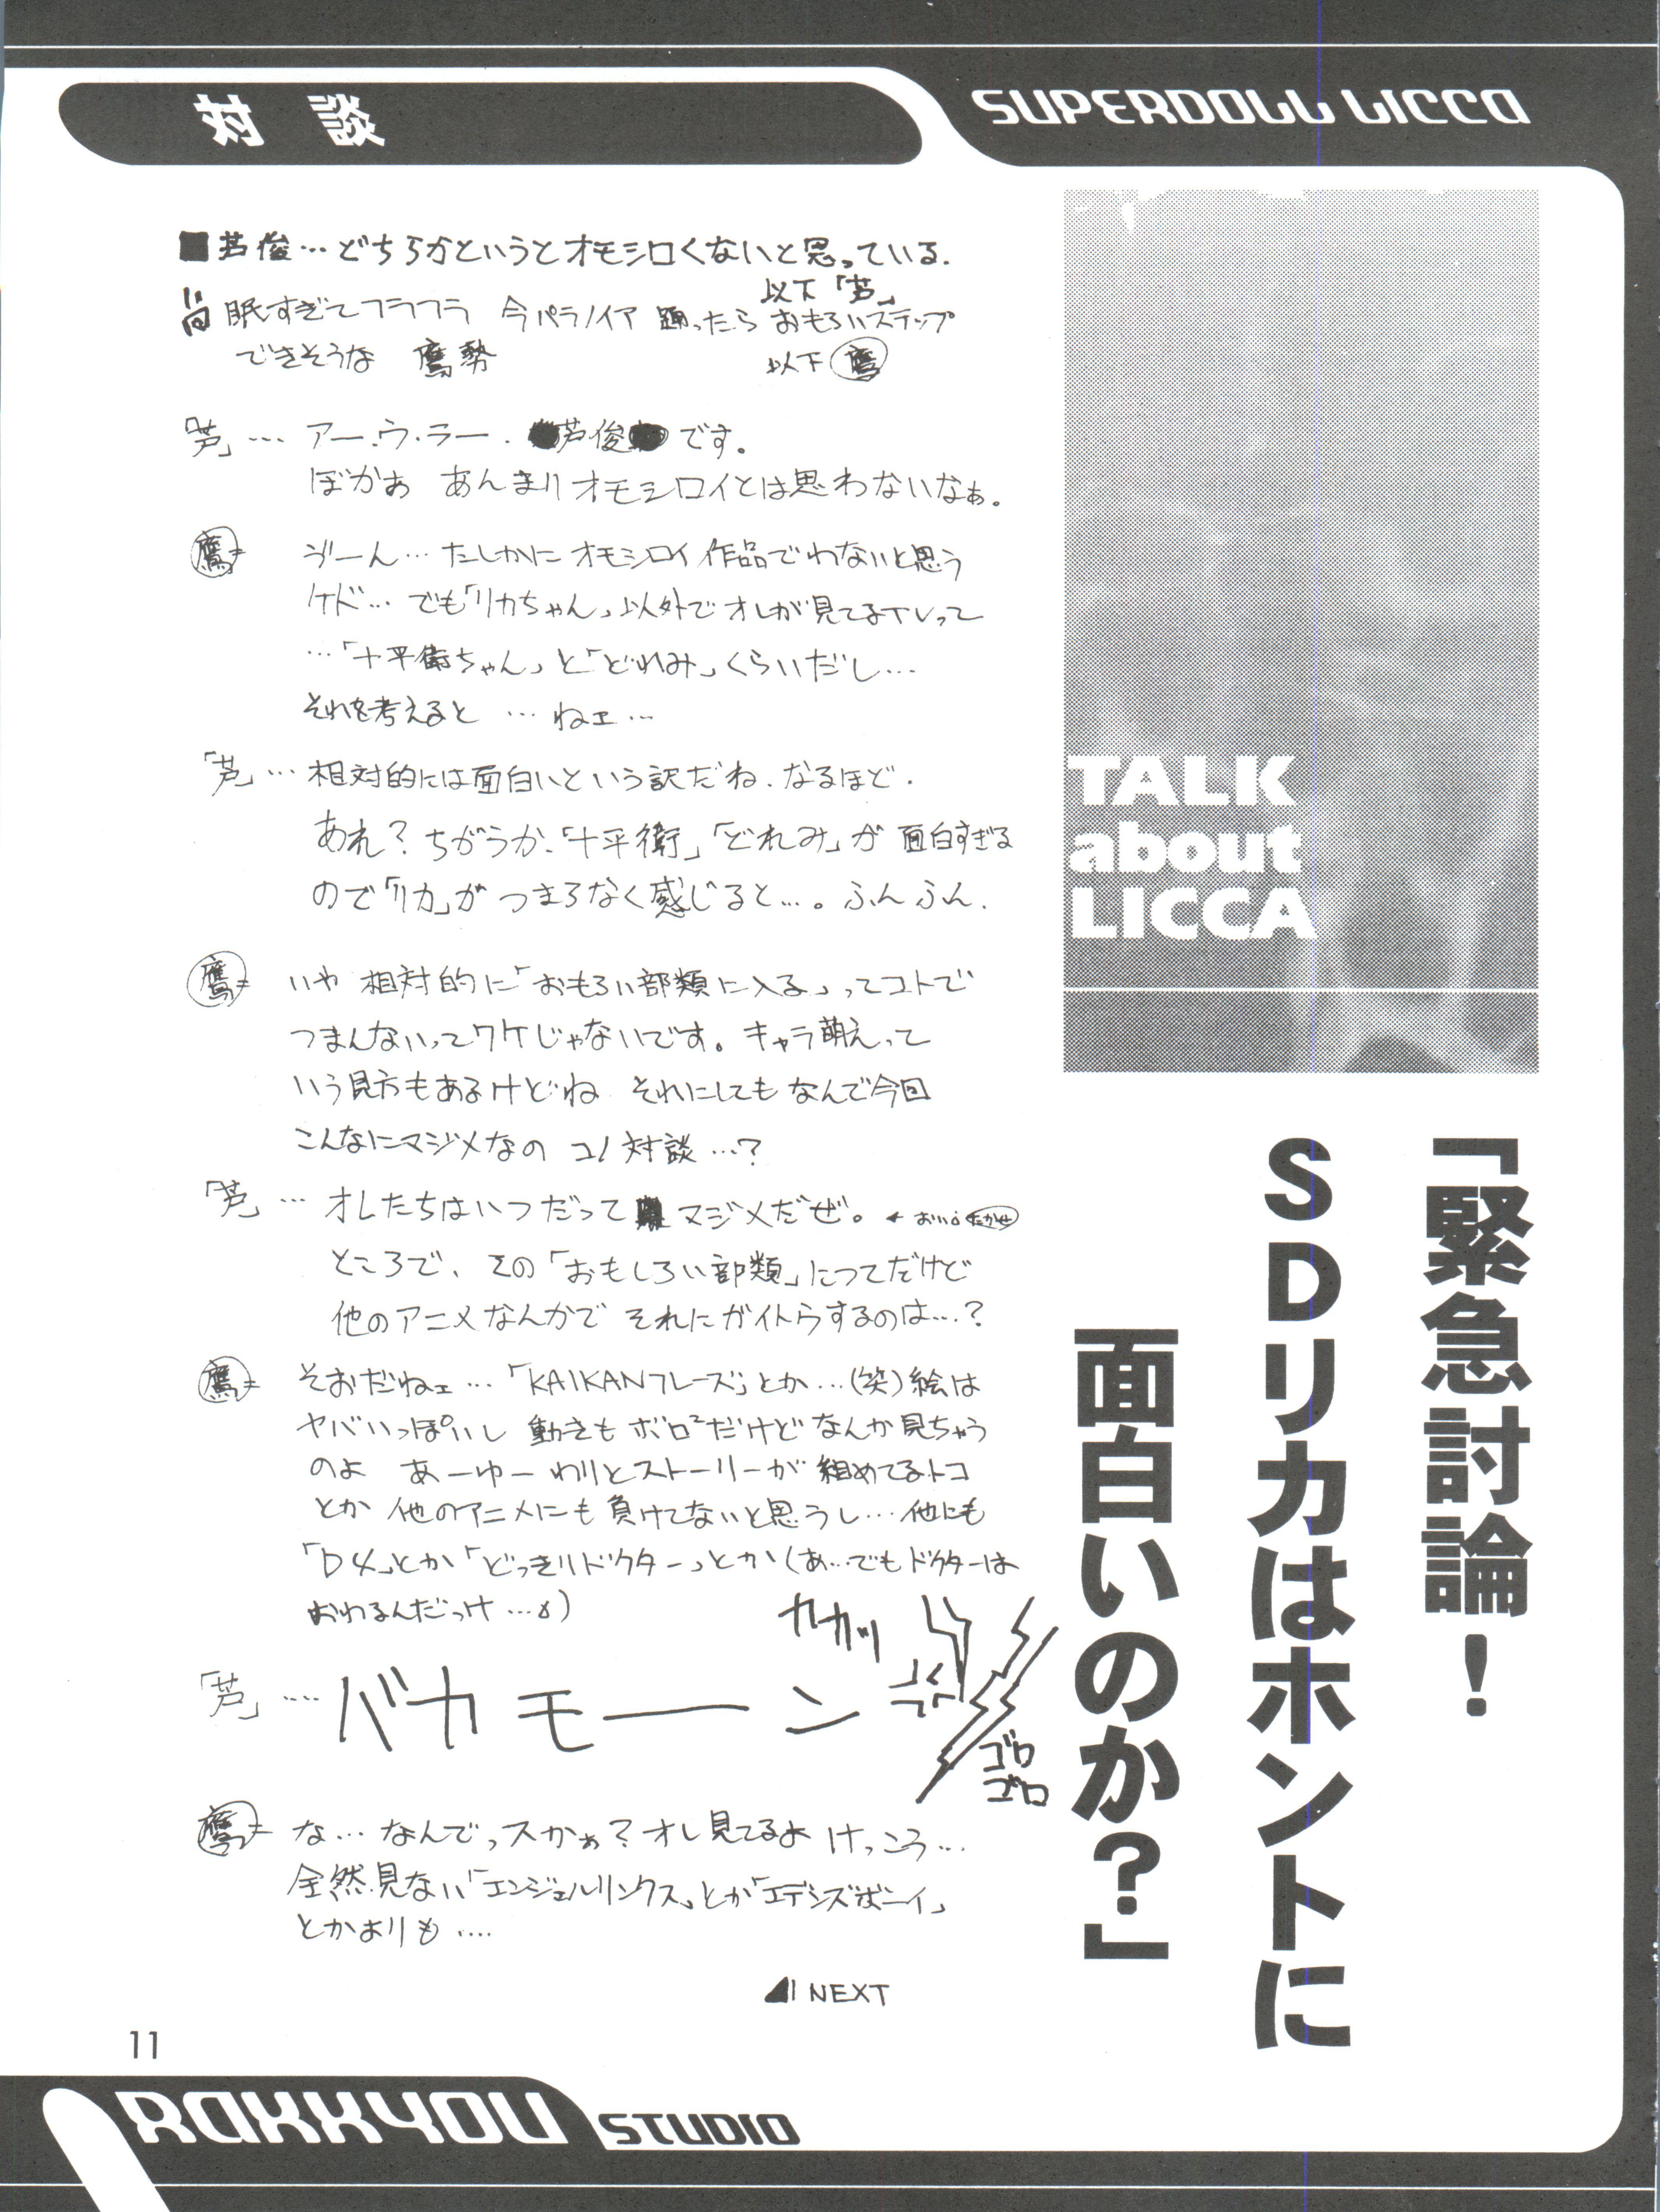 対談
SUPERDOLL LICCA
TALK
about
LICCA
「緊急討論！
SDリカはホントに
面白いのか？」
■芦俊…どちらかというとオモシロくないと思っている.
以下「芦」
眠すぎてフラフラ 今パラノイア 踊ったら おもろいステップ
できそうな 鷹勢 以下 鷹
「芦」… アー.ウ.ラー. 芦俊 です。
ぼかぁ あんまりオモシロイとは思わないなぁ。
鷹= ゔーん…たしかに オモシロイ作品でわないと思う
ケド… でも「リカちゃん」以外で オレが見てるTVって
…「十平衛ちゃん」と「どれみ」くらいだし…
それを考えると …ねェ…
「芦」…相対的には面白いという訳だね.なるほど.
あれ？ちがうか.「十平衛」「どれみ」が 面白すぎる
ので「リカ」が つまらなく感じると…。ふんふん.
鷹= いや 相対的に「おもろい部類に入る」ってコトで
つまんないってワケじゃないです。キャラ萌えって
いう見方もあるけどね それにしても なんで今回
こんなにマジメなの コノ対談…？
「芦」… オレたちはいつだって マジメだぜ。← おいおい たかせ
ところで、その「おもしろい部類」につてだけど
他のアニメなんかで それにガイトウするのは…？
鷹= そおだねェ…「KAIKANフレーズ」とか…(笑)絵は
ヤバいっぽいし 動きも ボロ²だけど なんか見ちゃう
のよ あーゆー わりとストーリーが 組めてるトコ
とか 他のアニメにも 負けてないと思うし…他にも
「D4」とか「どっきりドクター」とか(あ…でもドクターは
おわるんだっけ…)
カカッ
「芦」…バカモーン
ゴロ
ゴロ
鷹= な… なんでっスかぁ？オレ見てるよ けっこう…
全然見ない「エンジェルリンクス」とか「エデンズボーイ」
とかよりも ….
NEXT
11
RAKKYOU STUDIO